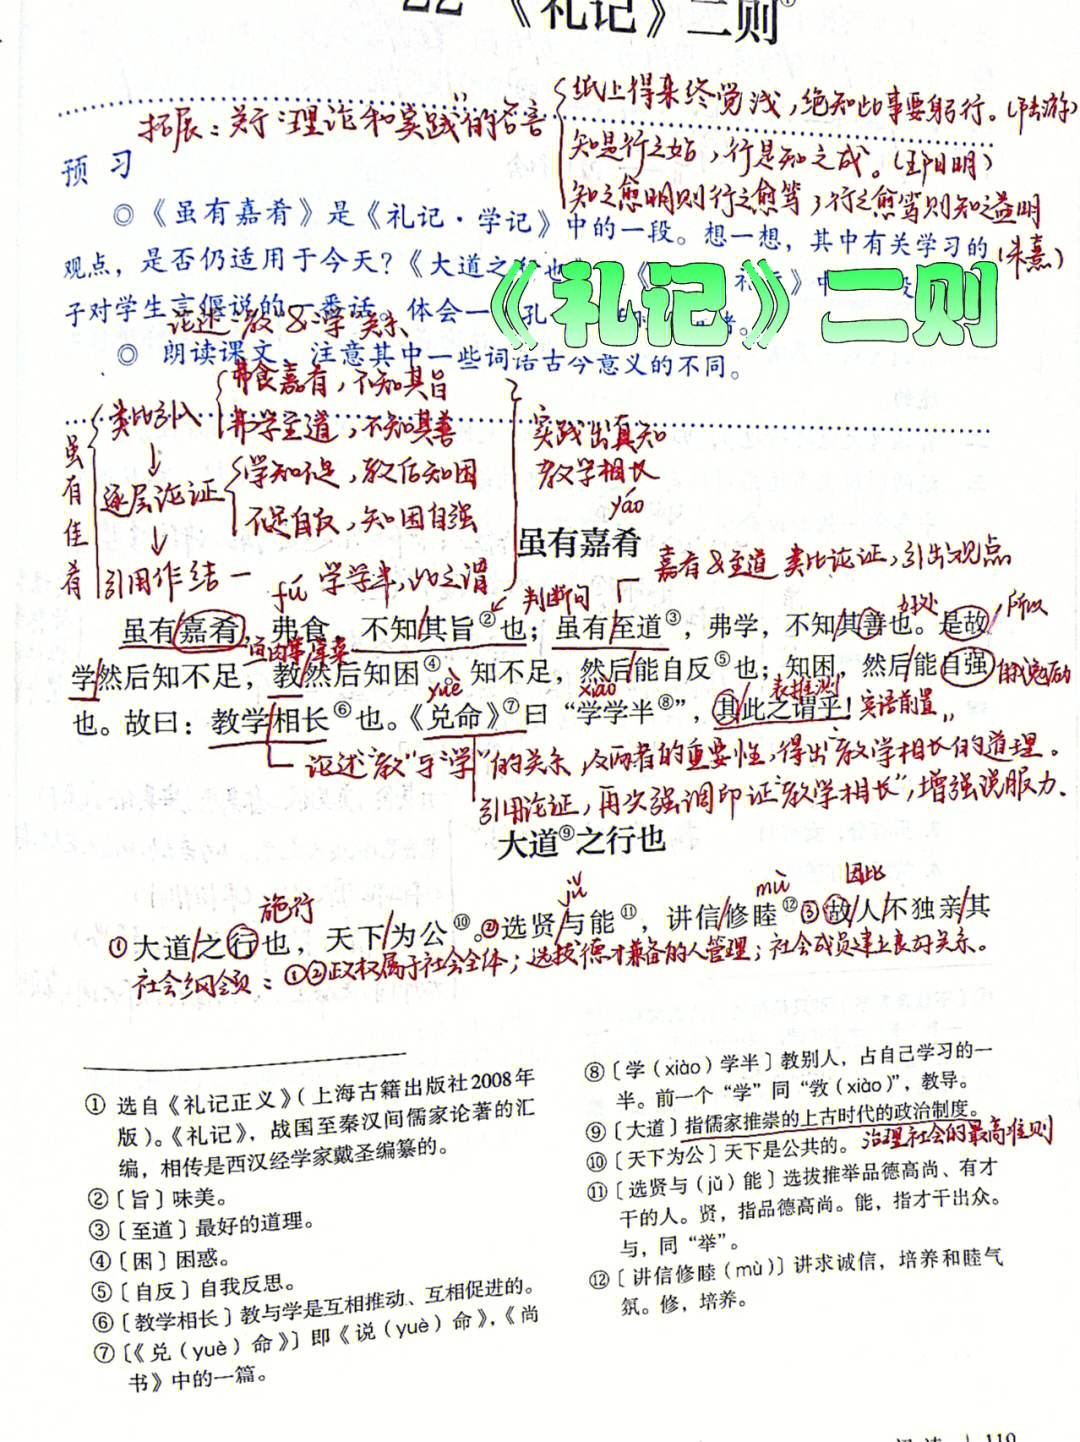 22 《礼记》二则①
拓展：关于“理论和实践”的名言
纸上得来终觉浅，绝知此事要躬行。（陆游）
知是行之始，行是知之成。（王阳明）
知之愈明则行之愈笃，行之愈笃则知之益明
（朱熹）
预习
◎《虽有嘉肴》是《礼记·学记》中的一段。想一想，其中有关学习的
观点，是否仍适用于今天？《大道之行也》
子对学生言偃说的一番话。体会一
《礼记》二则
论述教&学关系
◎ 朗读课文，注意其中一些词语古今意义的不同。
虽有佳肴
类比引入
弗食嘉肴，不知其旨
弗学至道，不知其善
↓
逐层论证
学知不足，教后知困
不足自反，知困自强
↓
引用作结—学学半，此之谓
实践出真知
教学相长
yáo
虽有嘉肴
嘉肴&至道 类比论证，引出观点
fú
判断句
好处
所以
虽有嘉肴，弗食，不知其旨②也；虽有至道③，弗学，不知其善也。是故
鱼肉等荤菜
学然后知不足，教然后知困④。知不足，然后能自反⑤也；知困，然后能自强
自我勉励
yuè
xiào
表推测
也。故曰：教学相长⑥也。《兑命》⑦曰“学学半⑧”，其此之谓乎！
宾语前置
论述“教”与“学”的关系，及两者的重要性，得出教学相长的道理。
引用论证，再次强调印证“教学相长”，增强说服力。
大道⑨之行也
施行
jǔ
mù
因此
①大道之行也，天下为公⑩。②选贤与能⑪，讲信修睦⑫③故人不独亲其
社会纲领：①②政权属于社会全体；选拔德才兼备的人管理；社会成员建立良好关系。
① 选自《礼记正义》（上海古籍出版社2008年
版）。《礼记》，战国至秦汉间儒家论著的汇
编，相传是西汉经学家戴圣编纂的。
②〔旨〕味美。
③〔至道〕最好的道理。
④〔困〕困惑。
⑤〔自反〕自我反思。
⑥〔教学相长〕教与学是互相推动、互相促进的。
⑦〔《兑（yuè）命》〕即《说（yuè）命》，《尚
书》中的一篇。
⑧〔学（xiào）学半〕教别人，占自己学习的一
半。前一个“学”同“敩（xiào）”，教导。
⑨〔大道〕指儒家推崇的上古时代的政治制度。
治理社会的最高准则
⑩〔天下为公〕天下是公共的。
⑪〔选贤与（jǔ）能〕选拔推举品德高尚、有才
干的人。贤，指品德高尚。能，指才干出众。
与，同“举”。
⑫〔讲信修睦（mù）〕讲求诚信，培养和睦气
氛。修，培养。